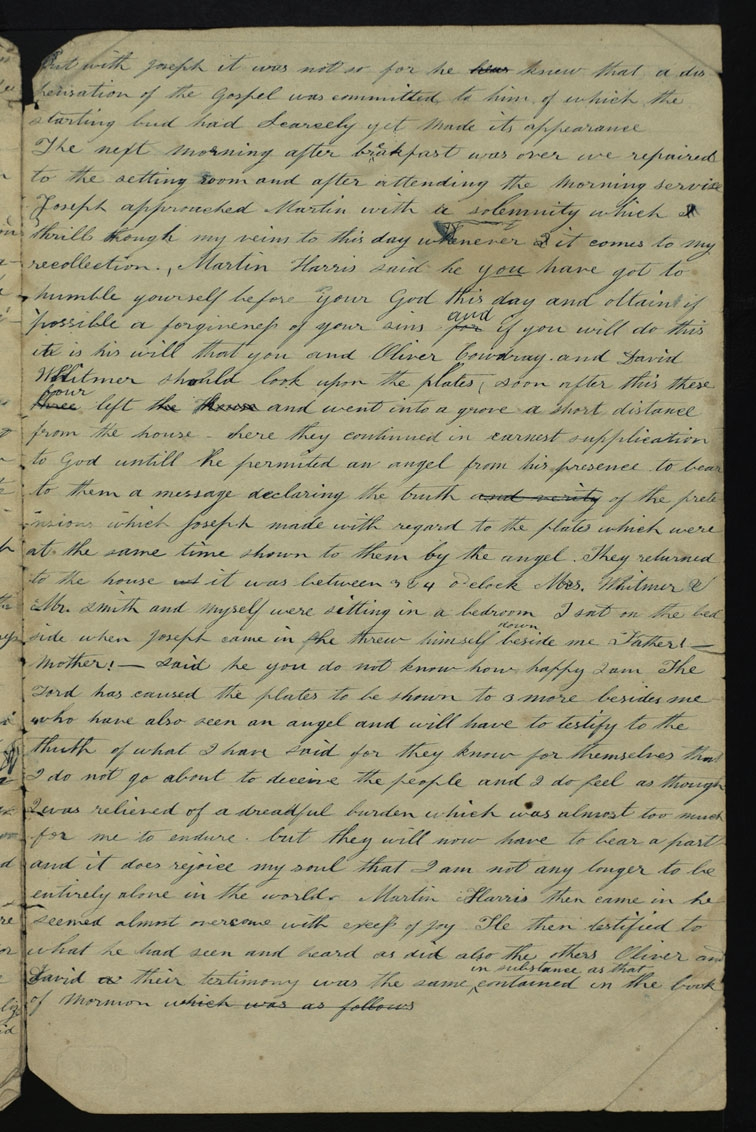 But with Joseph it was not so for he knew that a dis
pensation of the Gospel was committed to him of which the
starting bud had Scarcely yet made its appearance
The next morning after breakfast was over we repaired
to the setting room and after attending the morning service
Joseph approached Martin with a solemnity which
thrills though my veins to this day whenever it comes to my
recollection., Martin Harris said he you have got to
humble yourself before your God this day and obtain if
possible a forgiveness of your sins for and if you will do this
it is his will that you and Oliver Cowdray and David
Whitmer should look upon the plates, soon after this these
three four left the and went into a grove a short distance
from the house - here they continued in earnest supplication
to God untill he permited an angel from his presence to bear
to them a message declaring the truth and verity of the prete
nsions which Joseph made with regard to the plates which were
at the same time shown to them by the angel. They returned
to the house it was between 3 & 4 o'clock Mrs. Whitmer &
Mr. Smith and myself were sitting in a bedroom I sat on the bed
side when Joseph came in he threw himself down beside me Father! —
Mother! — said he you do not know how happy I am The
Lord has caused the plates to be shown to 3 more besides me
who have also seen an angel and will have to testify to the
thuth of what I have said for they know for themselves that
I do not go about to deceive the people and I do feel as though
I was relieved of a dreadful burden which was almost too much
for me to endure. but they will now have to bear a part
and it does rejoice my soul that I am not any longer to be
entirely alone in the world. Martin Harris then came in he
seemed almost overcome with excess of joy He then testified to
what he had seen and heard as did also the others Oliver and
David their testimony was the same in substance as that contained in the book
of Mormon which was as follows